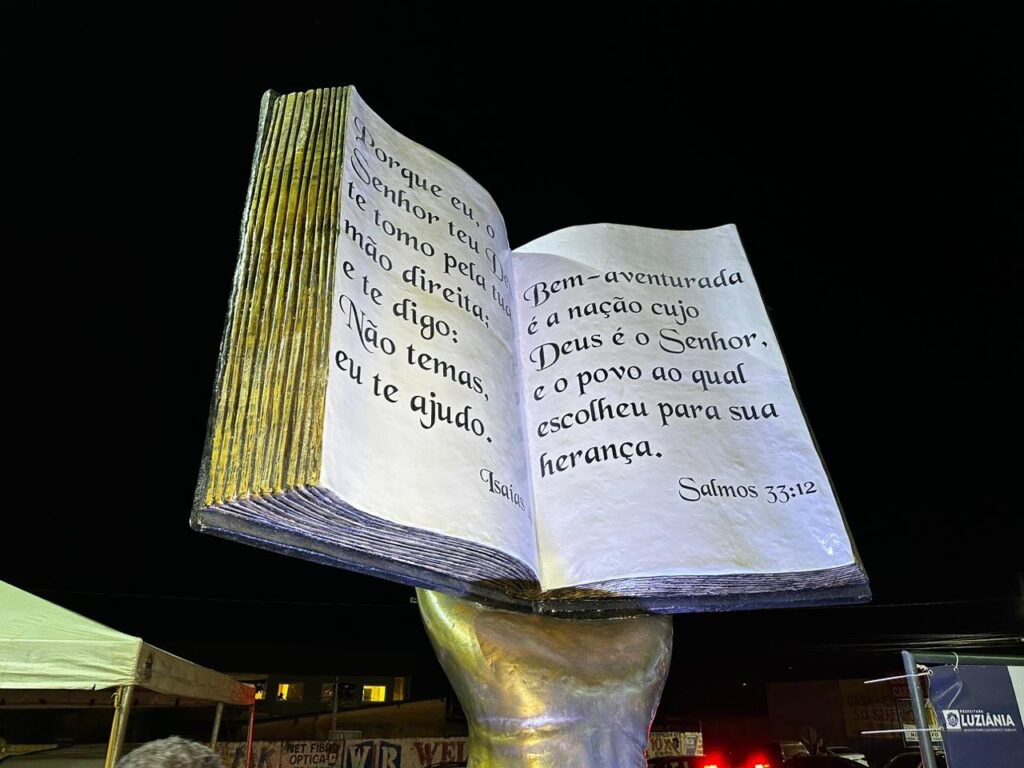 Porque eu, o
Senhor teu
te tomo pela tua
mão direita;
e te digo:
Não temas,
eu te ajudo.
Isaías
Bem-aventurada
é a nação cujo
Deus é o Senhor,
e o povo ao qual
escolheu para sua
herança.
Salmos 33:12
NET FIBRA
ÓPTICA
PREFEITURA
LUZIÂNIA